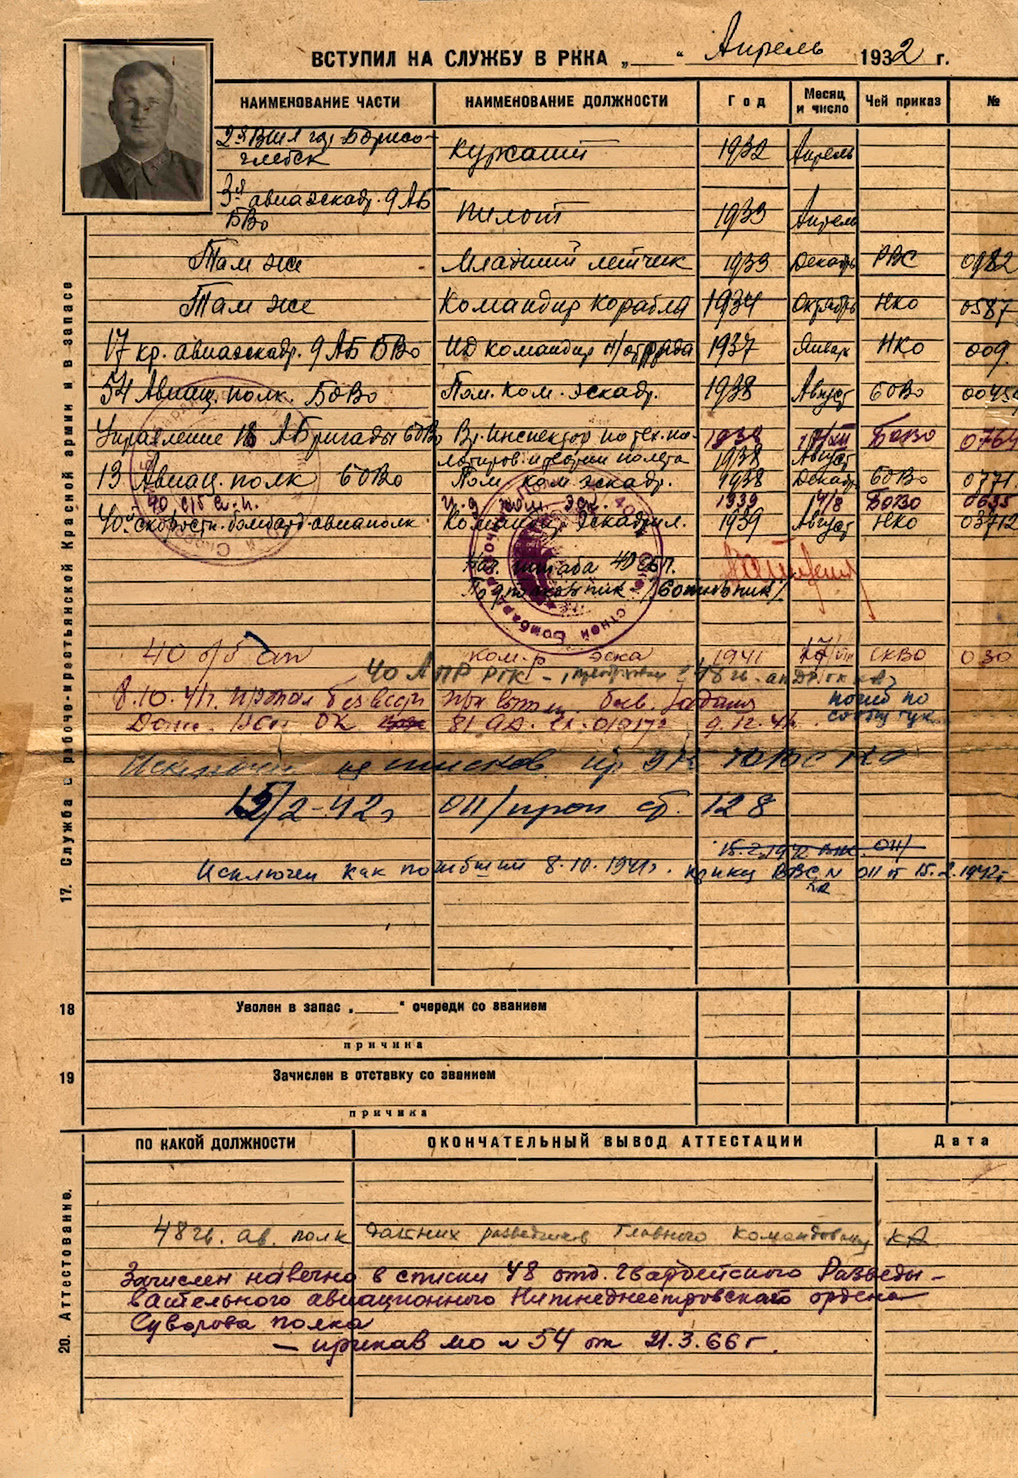 ВСТУПИЛ НА СЛУЖБУ В РККА „ “ Апрель 1932 г.
НАИМЕНОВАНИЕ ЧАСТИ НАИМЕНОВАНИЕ ДОЛЖНОСТИ Год Месяц и число Чей приказ №
2я ВШЛ гор Борисо-
глебск Курсант 1932 Апрель
3я авиаэскадр. 9 АБ
БВО Пилот 1933 Апрель
Там же Младший летчик 1933 Декабрь РВС 0982
Там же Командир корабля 1934 Октябрь НКО 0587
17 кр. авиаэскадр. 9 АБ БВО ИД командир отряда 1937 Январь НКО 009
54 Авиац. полк. БОВО Пом. ком. эскадр. 1938 Август БОВО
Управление 18 АБригады БОВО Вр. Инспектор по тех. пи- БОВО 0764
лотиров. и теории полета 1938 Август
13 Авиац. полк БОВО Пом. ком. эскадр. 1938 Декабрь БОВО 0771
40 с/б а.п. и.д. ком. эс. 1939 14/8 БОВО 0635
40. Скоростн. бомбард. авиаполк Командир Эскадрил. 1939 Август НКО 03712
Нач. штаба 40 СБП.
40 с/б ап ком-р эска 1941 СКВО 030
8.10.41г. пропал без вести при выполн. боев. задания
9.12.41г.
15/2-42г 011/ стр. 128
Исключен как погибший 8.10.1941г. приказ ВВС КА № 011 от 15.2.1942г
17. Служба в рабоче-крестьянской Красной армии и в запасе
18 Уволен в запас „ “ очереди со званием
причина
19 Зачислен в отставку со званием
причина
ПО КАКОЙ ДОЛЖНОСТИ ОКОНЧАТЕЛЬНЫЙ ВЫВОД АТТЕСТАЦИИ Дата
20. Аттестование.
48 гв. ав. полк дальних разведчиков Главного Командования КА
Зачислен навечно в списки 48 отд. Гвардейского Разведы-
вательного авиационного Нижнеднестровского ордена
Суворова полка
— приказ МО № 54 от 21.3.66 г.